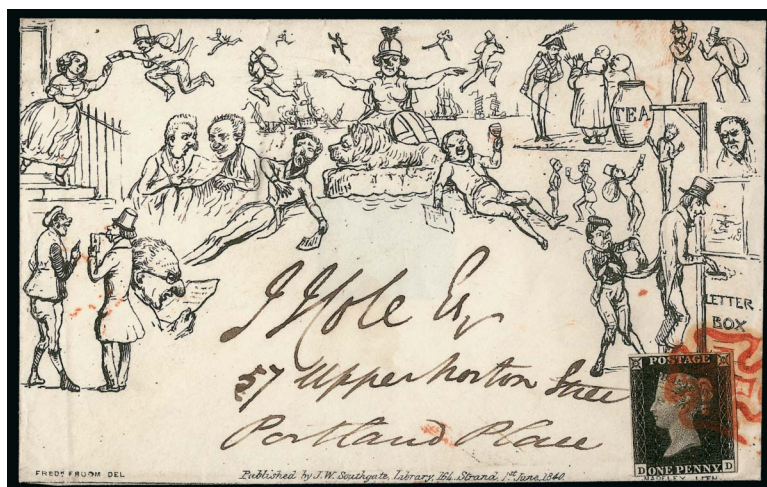 TEA
LETTER
BOX
J J Cole Esq
57 Upper Norton Street
Portland Place
POSTAGE
D ONE PENNY D
FREDK FROOM DEL
Published by J.W. Southgate, Library, 164, Strand, 1st June, 1840.
MADELEY LITH.